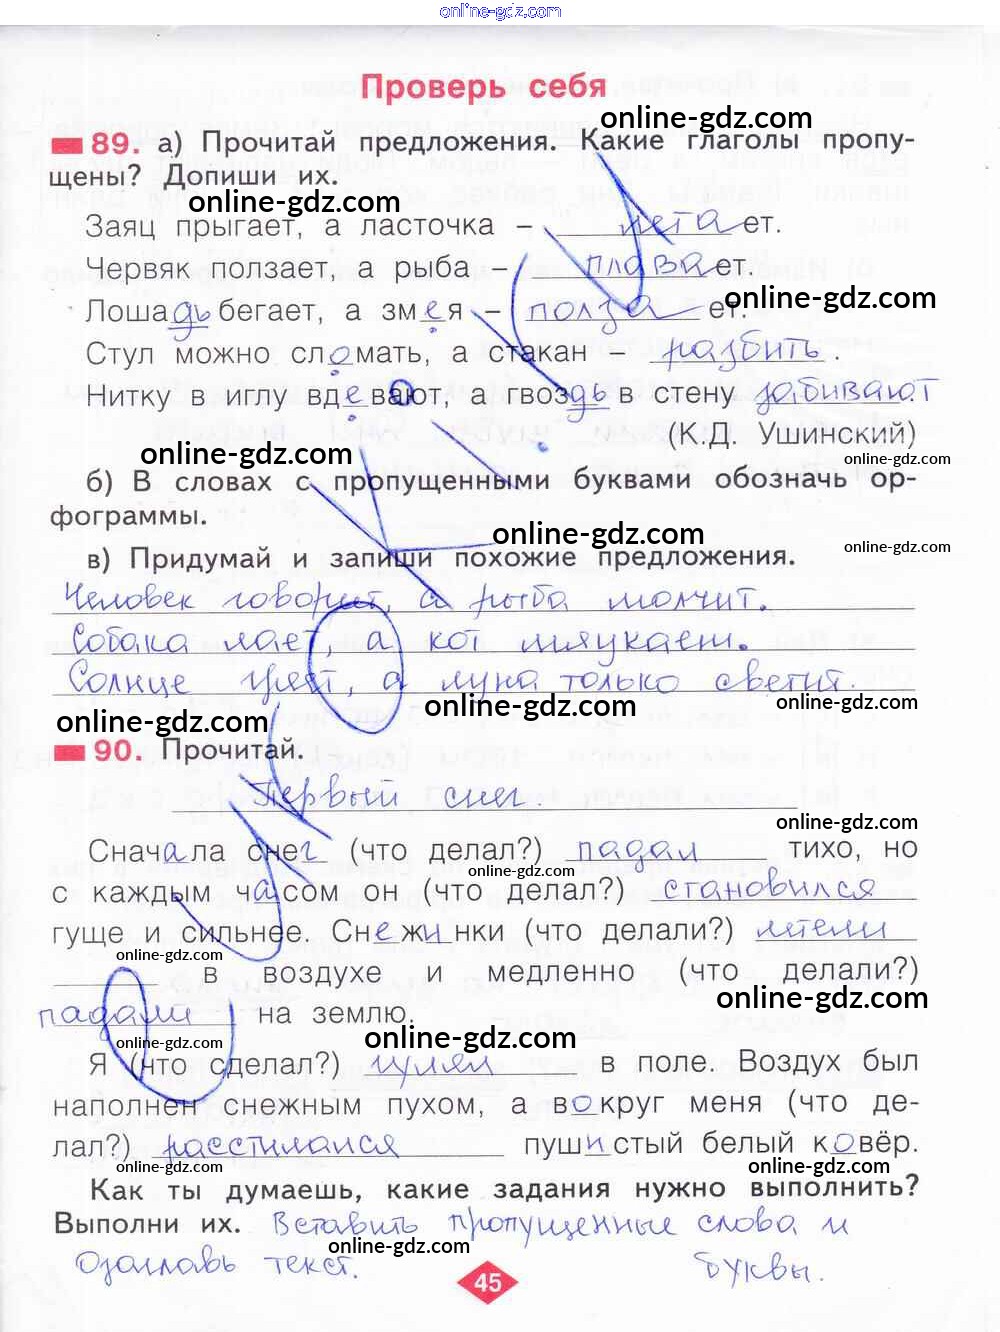 online-gdz.com
Проверь себя
online-gdz.com
89. а) Прочитай предложения. Какие глаголы пропу-
щены? Допиши их.
online-gdz.com online-gdz.com
Заяц прыгает, а ласточка – летает.
Червяк ползает, а рыба – плавает.
online-gdz.com
Лошадь бегает, а змея – ползает.
Стул можно сломать, а стакан – разбить.
Нитку в иглу вдевают, а гвоздь в стену забивают
(К.Д. Ушинский)
online-gdz.com online-gdz.com
б) В словах с пропущенными буквами обозначь ор-
фограммы.
online-gdz.com online-gdz.com
в) Придумай и запиши похожие предложения.
Человек говорит, а рыба молчит.
Собака лает, а кот мяукает.
Солнце греет, а луна только светит.
online-gdz.com online-gdz.com online-gdz.com
90. Прочитай.
Первый снег.
online-gdz.com
Сначала снег (что делал?) падал тихо, но
online-gdz.com
с каждым часом он (что делал?) становился
гуще и сильнее. Снежинки (что делали?) летели
online-gdz.com
в воздухе и медленно (что делали?)
online-gdz.com
падали на землю.
online-gdz.com online-gdz.com
Я (что сделал?) гулял в поле. Воздух был
наполнен снежным пухом, а вокруг меня (что де-
лал?) расстилался пушистый белый ковёр.
online-gdz.com online-gdz.com
Как ты думаешь, какие задания нужно выполнить?
Выполни их. Вставить пропущенные слова и
online-gdz.com
Озаглавь текст. буквы.
45